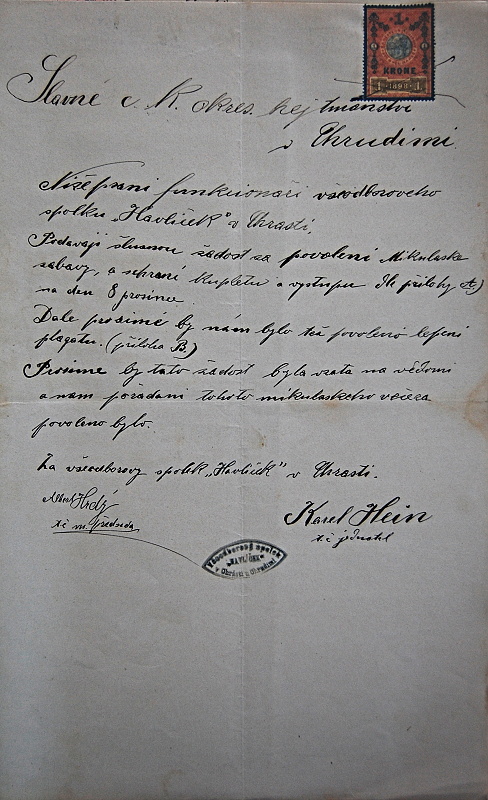 1
KRONE
1 1898 1
Slavné c. K. okres. hejtmanství
v Chrudimi.
Níže psaní funkcionáři všeodborového
spolku „Havlíček“ v Chrasti.
Podávají slušnou žádost za povolení Mikulaske
zábavy, a sehrání kupletu a výstupu dle přílohy A.)
na den 8 prosince.
Dále prosíme by nám bylo též povoleno lepení
plagatu. (příloha B.)
Prosíme by tato žádost byla vzata na vědomí
a nám pořádání tohoto mikulaskeho večera
povoleno bylo.
Za všeodborový spolek „Havlíček“ v Chrasti.
Albert
t.č. m. Předseda
Karel Hein
t.č. jednatel
Všeodborový spolek
„HAVLÍČEK“
v Chrasti u Chrudimi